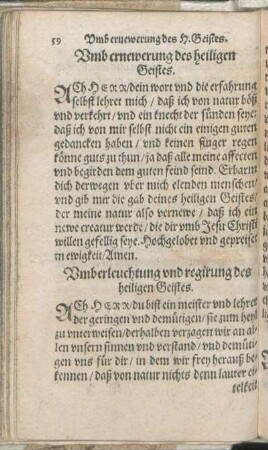 59 Vmb ernewerung des H. Geistes.
Vmb ernewerung des heiligen
Geistes.
ACh HERR / dein wort vnd die erfahrung
selbst lehret mich / daß ich von natur böß
vnd verkehrt / vnd ein knecht der sünden seye
daß ich von mir selbst nicht ein einigen guten
gedancken haben / vnd keinen finger regen
könne guts zu thun / ja daß alle meine affecten
vnd begirden dem guten feind seind. Erbarm
dich derwegen vber mich elenden menschen /
vnd gib mir die gab deines heiligen Geistes /
der meine natur also vernewe / daß ich ein
newe creatur werde / die dir vmb Jesu Christi
willen gefellig seye. Hochgelobet vnd gepreiset
in ewigkeit / Amen.
Vmb erleuchtung vnd regirung des
heiligen Geistes.
ACh HERR / du bist ein meister vnd lehrer
der geringen vnd demütigen / sie zum heyl
zu vnerweisen / derhalben verzagen wir an al-
len vnsern sinnen vnd verstand / vnd demüti-
gen vns für dir / in dem wir frey herauß be-
kennen / daß von natur nichts denn lauter ei-
telkeit